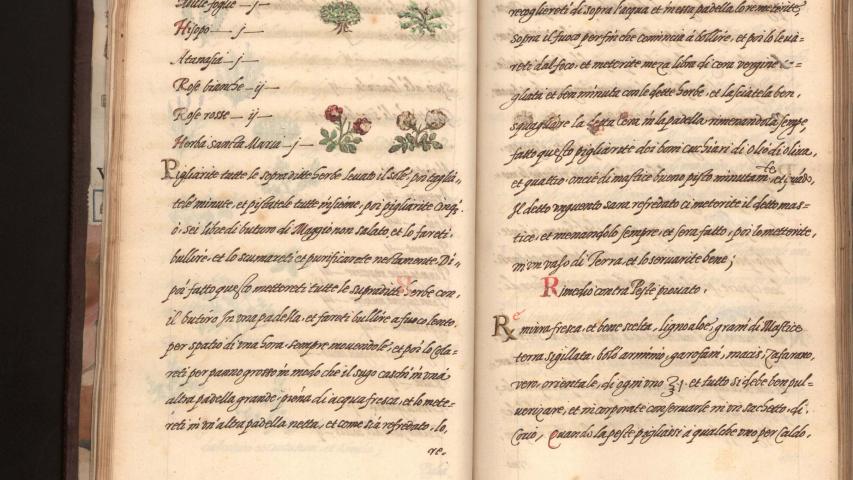 Hisopo - j -
Atanasia - j -
Rose bianche - ij -
Rose rosse - ij -
Herba sancta Maria - j -
Pigliarite tutte le sopraditte herbe levato il sole, poi
tele minute, et pistatele tutte insieme, poi pigliarite
ò sei libre di buturo di Maggio non salato, et lo fareti
bullire, et lo scumareti et purificarete nettamente. Di=
poi fatto questo mettereti tutte le sopraditte herbe con,
il butiro In una padella, et fareti bullire a fuoco lento,
per spatio d'una hora, sempre movendole, et poi lo cola=
reti per panno grosso in modo che il sugo caschi in una
altra padella grande piena di acqua fresca, et lo mete=
reti in un'altra padella netta, et come sarà refredato, lo,
re.
recogliereti di sopra l'acqua, et in essa padella lo remeterite,
sopra il fuoco per fin che comincia à bollire, et poi lo leva=
rete dal foco, et meterite meza libra di cera vergine
gliata et ben minuta con le dette herbe, et lasciatela ben,
squagliare la detta Cera in la padella rimenandola sempre,
fatto questo pigliarete doi boni cuchiari di Olio di oliva,
et quattro oncie di mastice bueno pisto minutamte, et quado,
Il detto unguento sara refredato ci meterite il detto mas=
tice, et menandolo sempre, et sera fatto, poi lo metterite,
in un vaso di Terra, et lo servarite bene;
Rimedio contra Peste provato.
Re mirra fresca, et bene scelta, ligno aloe, grani di Mastice
terra sigillata, bolo armino, garofani, macis, Zafarano,
vero, orientale, di ogni uno ʒ j. et tutto si debe ben pul=
verizare, et incorporate conservarle in un sachetto, di
Corio, Quando la peste pigliassi à qualche uno per Caldo,